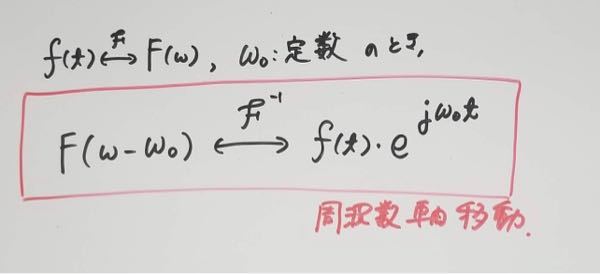 f(t) ⟷ℱ F(ω), ω₀:定数 のとき,
F(ω-ω₀) ⟷ℱ⁻¹ f(t)・e^{jω₀t}
周波数軸移動.